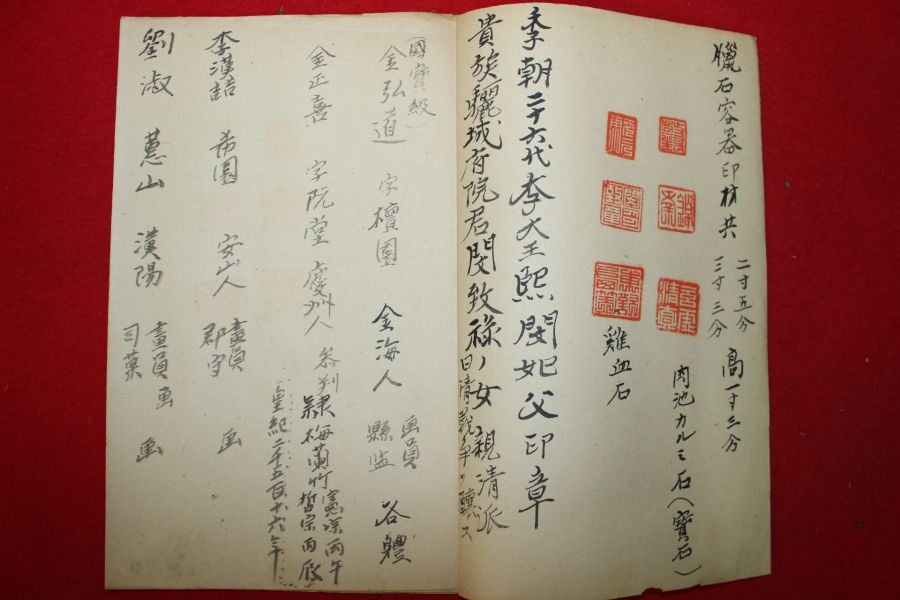 臘石容器印材共 二寸五分 三寸三分 高一寸三分
肉池カルミ石(寶石)
雞血石
李朝二十六代李大王熙閔妃父印章
貴族驪城府院君閔致祿ノ女親清派
日清戦争ノ醸ス
(國寶級)
金弘道 字檀園 金海人 画員 縣监 各體
金正喜 字阮堂 慶州人 参判 隷梅蘭竹 憲宗丙午 哲宗丙辰
皇紀二千五百十六年
李漢喆 希園 安山人 畫員 郡守 画
劉淑 蕙山 漢陽 畫員画 司菓 画